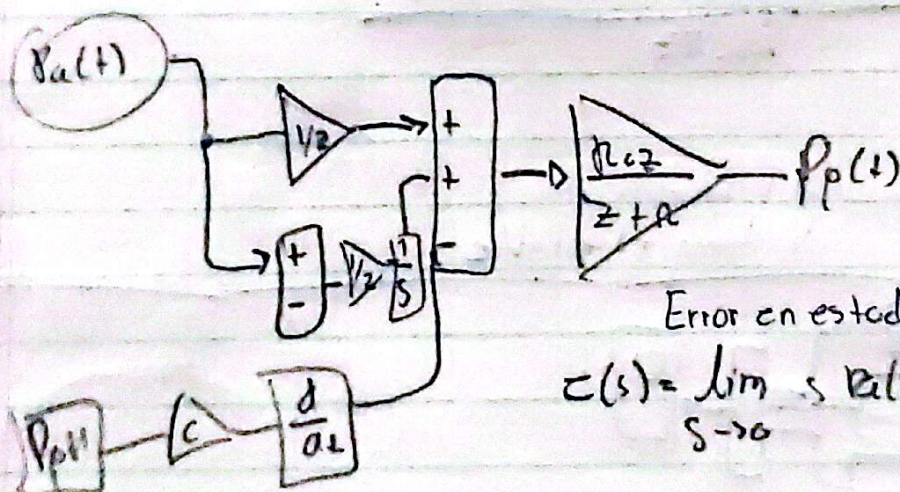 Pa(t)
1/z
+
+
-
R·z
z+R
Pp(t)
+
-
1/z
1
s
Error en estad
e(s) = lim s Pa(
s→0
Pp(t)
C
d
dt